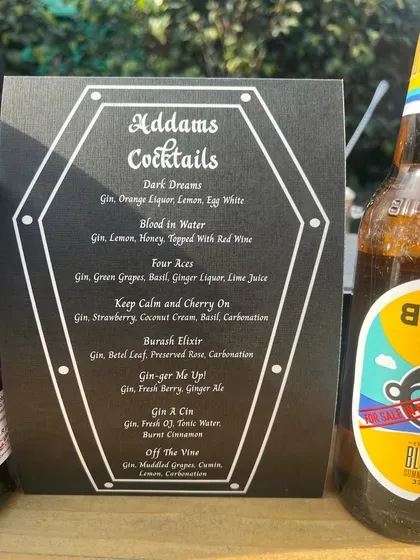 Addams
Cocktails
Dark Dreams
Gin, Orange Liquor, Lemon, Egg White
Blood in Water
Gin, Lemon, Honey, Topped With Red Wine
Four Aces
Gin, Green Grapes, Basil, Ginger Liquor, Lime Juice
Keep Calm and Cherry On
Gin, Strawberry, Coconut Cream, Basil, Carbonation
Burash Elixir
Gin, Betel Leaf, Preserved Rose, Carbonation
Gin-ger Me Up!
Gin, Fresh Berry, Ginger Ale
Gin A Cin
Gin, Fresh OJ, Tonic Water,
Burnt Cinnamon
Off The Vine
Gin, Muddled Grapes, Cumin,
Lemon, Carbonation
FOR SALE